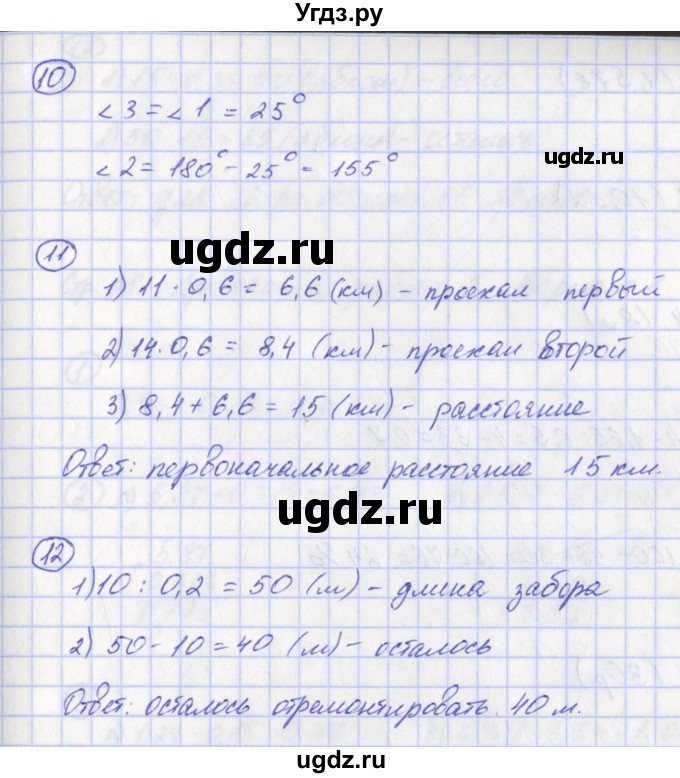 Угдз.ру
10
∠3 = ∠1 = 25°
∠2 = 180° - 25° = 155°
ugdz.ru
ugdz.ru
11
1) 11 · 0,6 = 6,6 (км) - проехал первый
2) 14 · 0,6 = 8,4 (км) - проехал второй
3) 8,4 + 6,6 = 15 (км) - расстояние
Ответ: первоначальное расстояние 15 км.
ugdz.ru
12
1) 10 : 0,2 = 50 (м) - длина забора
ugdz.ru
2) 50 - 10 = 40 (м) - осталось
Ответ: осталось отремонтировать 40 м.
ugdz.ru